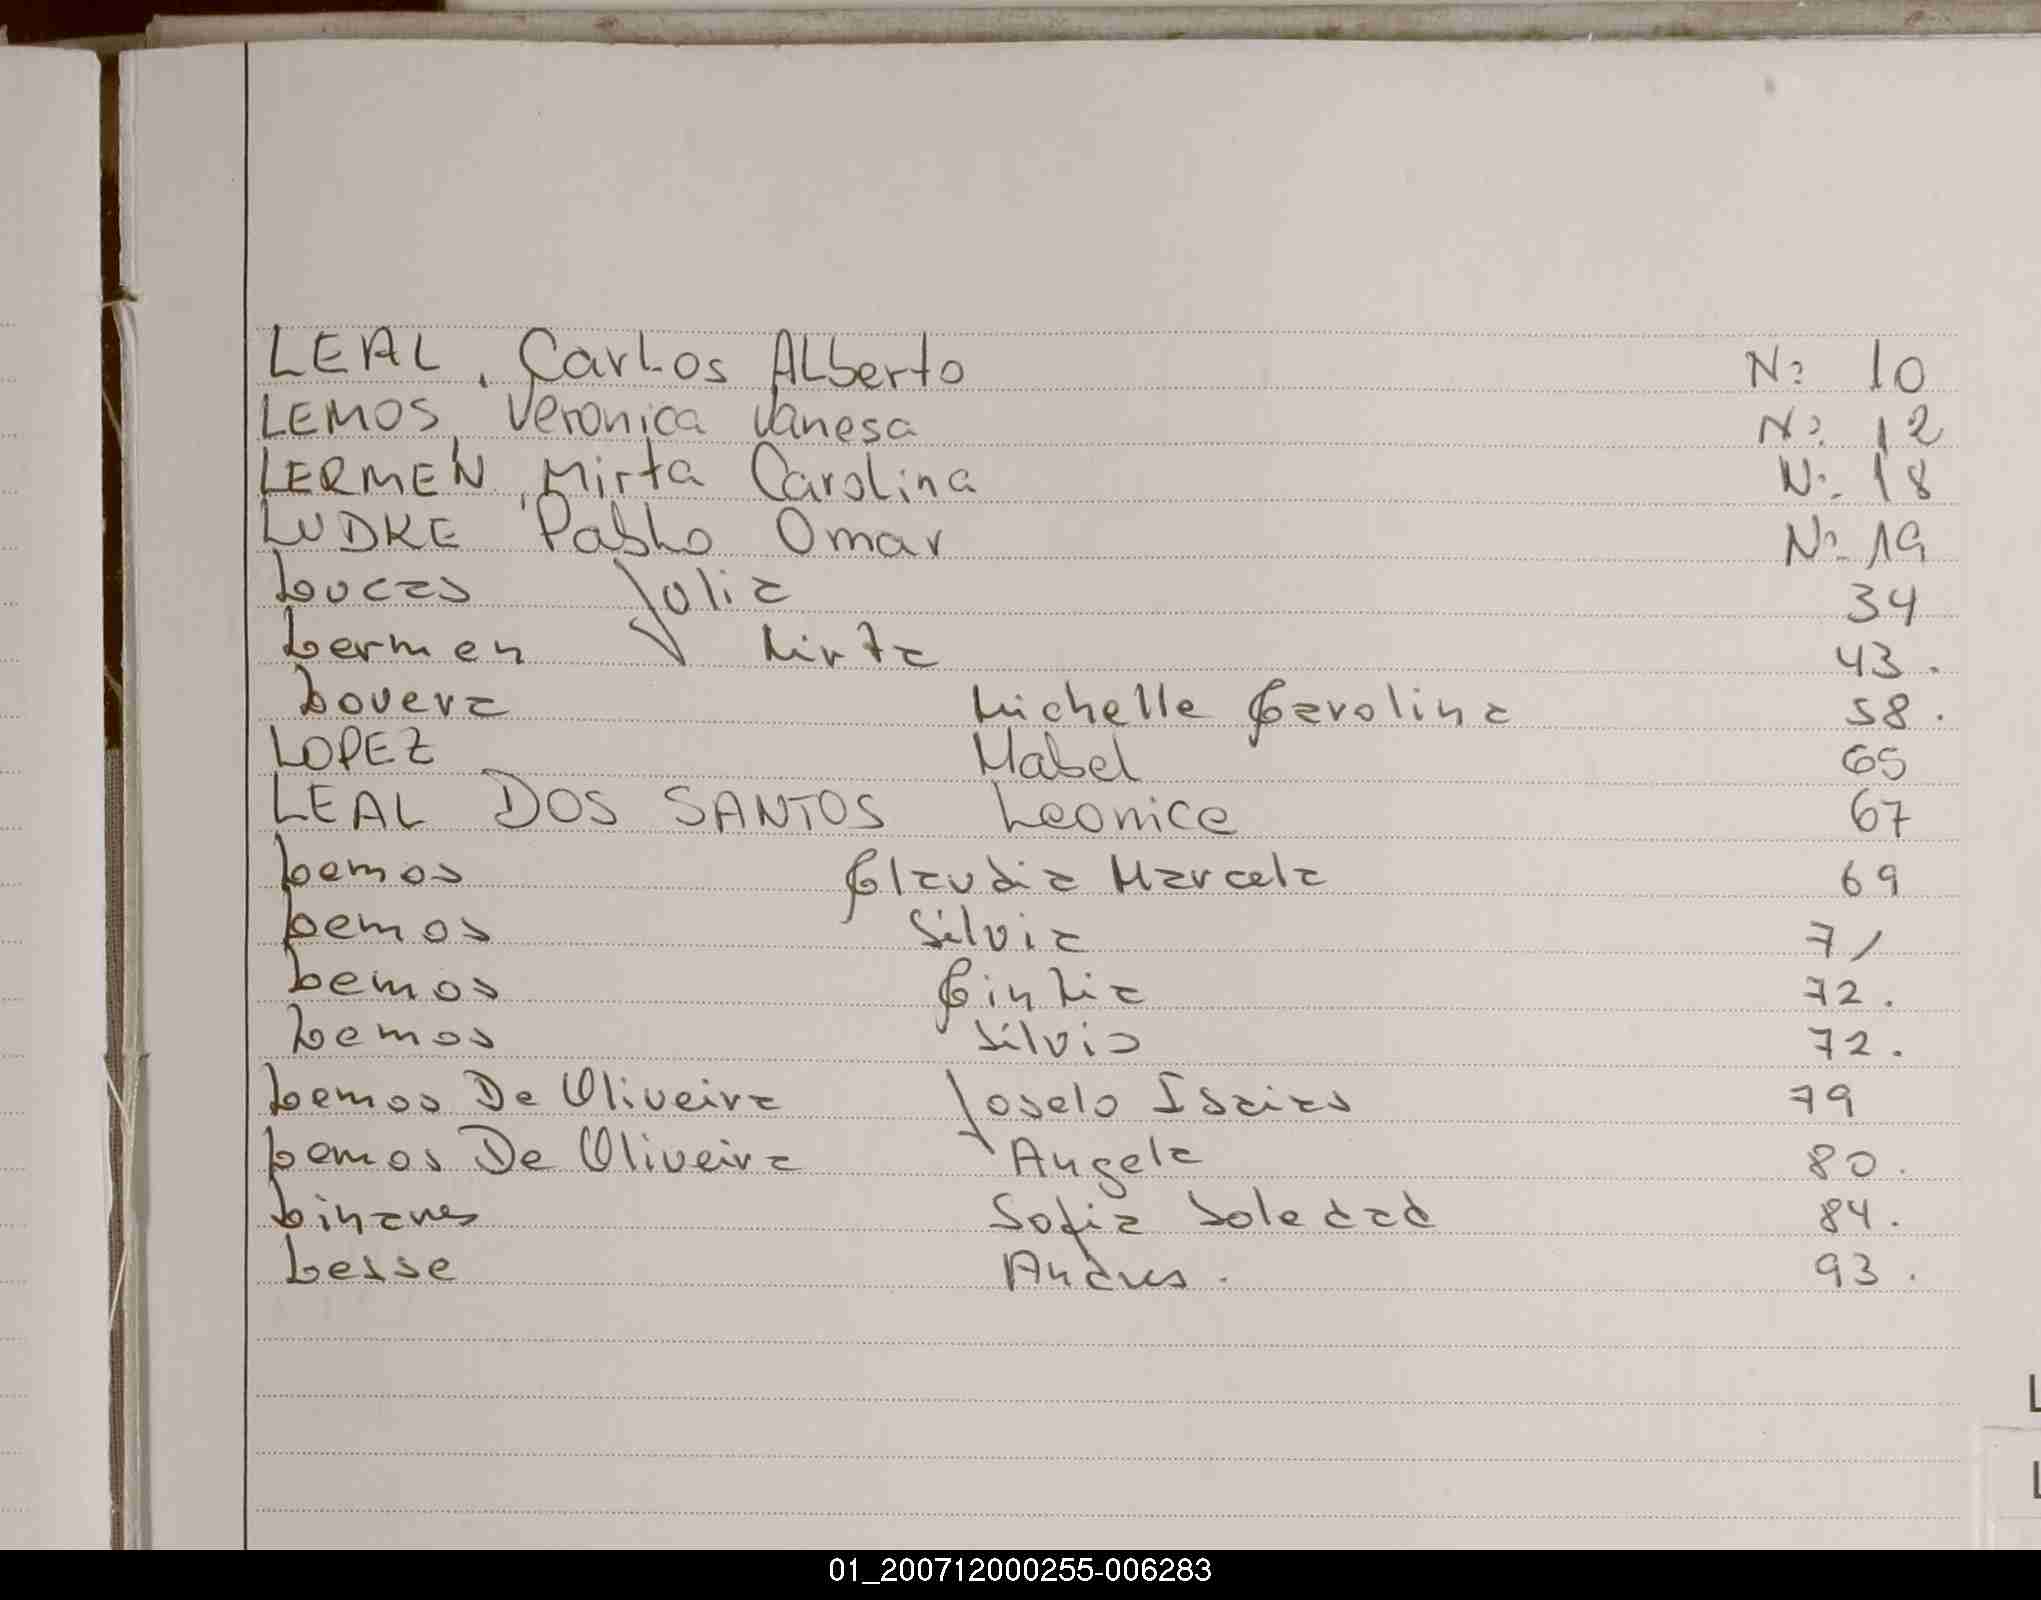 LEAL, Carlos Alberto N: 10
LEMOS, Veronica Vanesa N: 12
LERMEN, Mirta Carolina N: 18
LUDKE Pablo Omar N: 19
Lucas Julia 34
Lermen Mirta 43.
Lovera Michelle Carolina 58.
LOPEZ Mabel 65
LEAL DOS SANTOS Leonice 67
Lemos Claudia Marcela 69
Lemos Silvia 71
Lemos Cintia 72.
Lemos Silvio 72.
Lemos De Oliveira Joselo Isaias 79
Lemos De Oliveira Angela 80.
Linares Sofia Soledad 84.
Lesse Andres. 93.
L
L
01_200712000255-006283